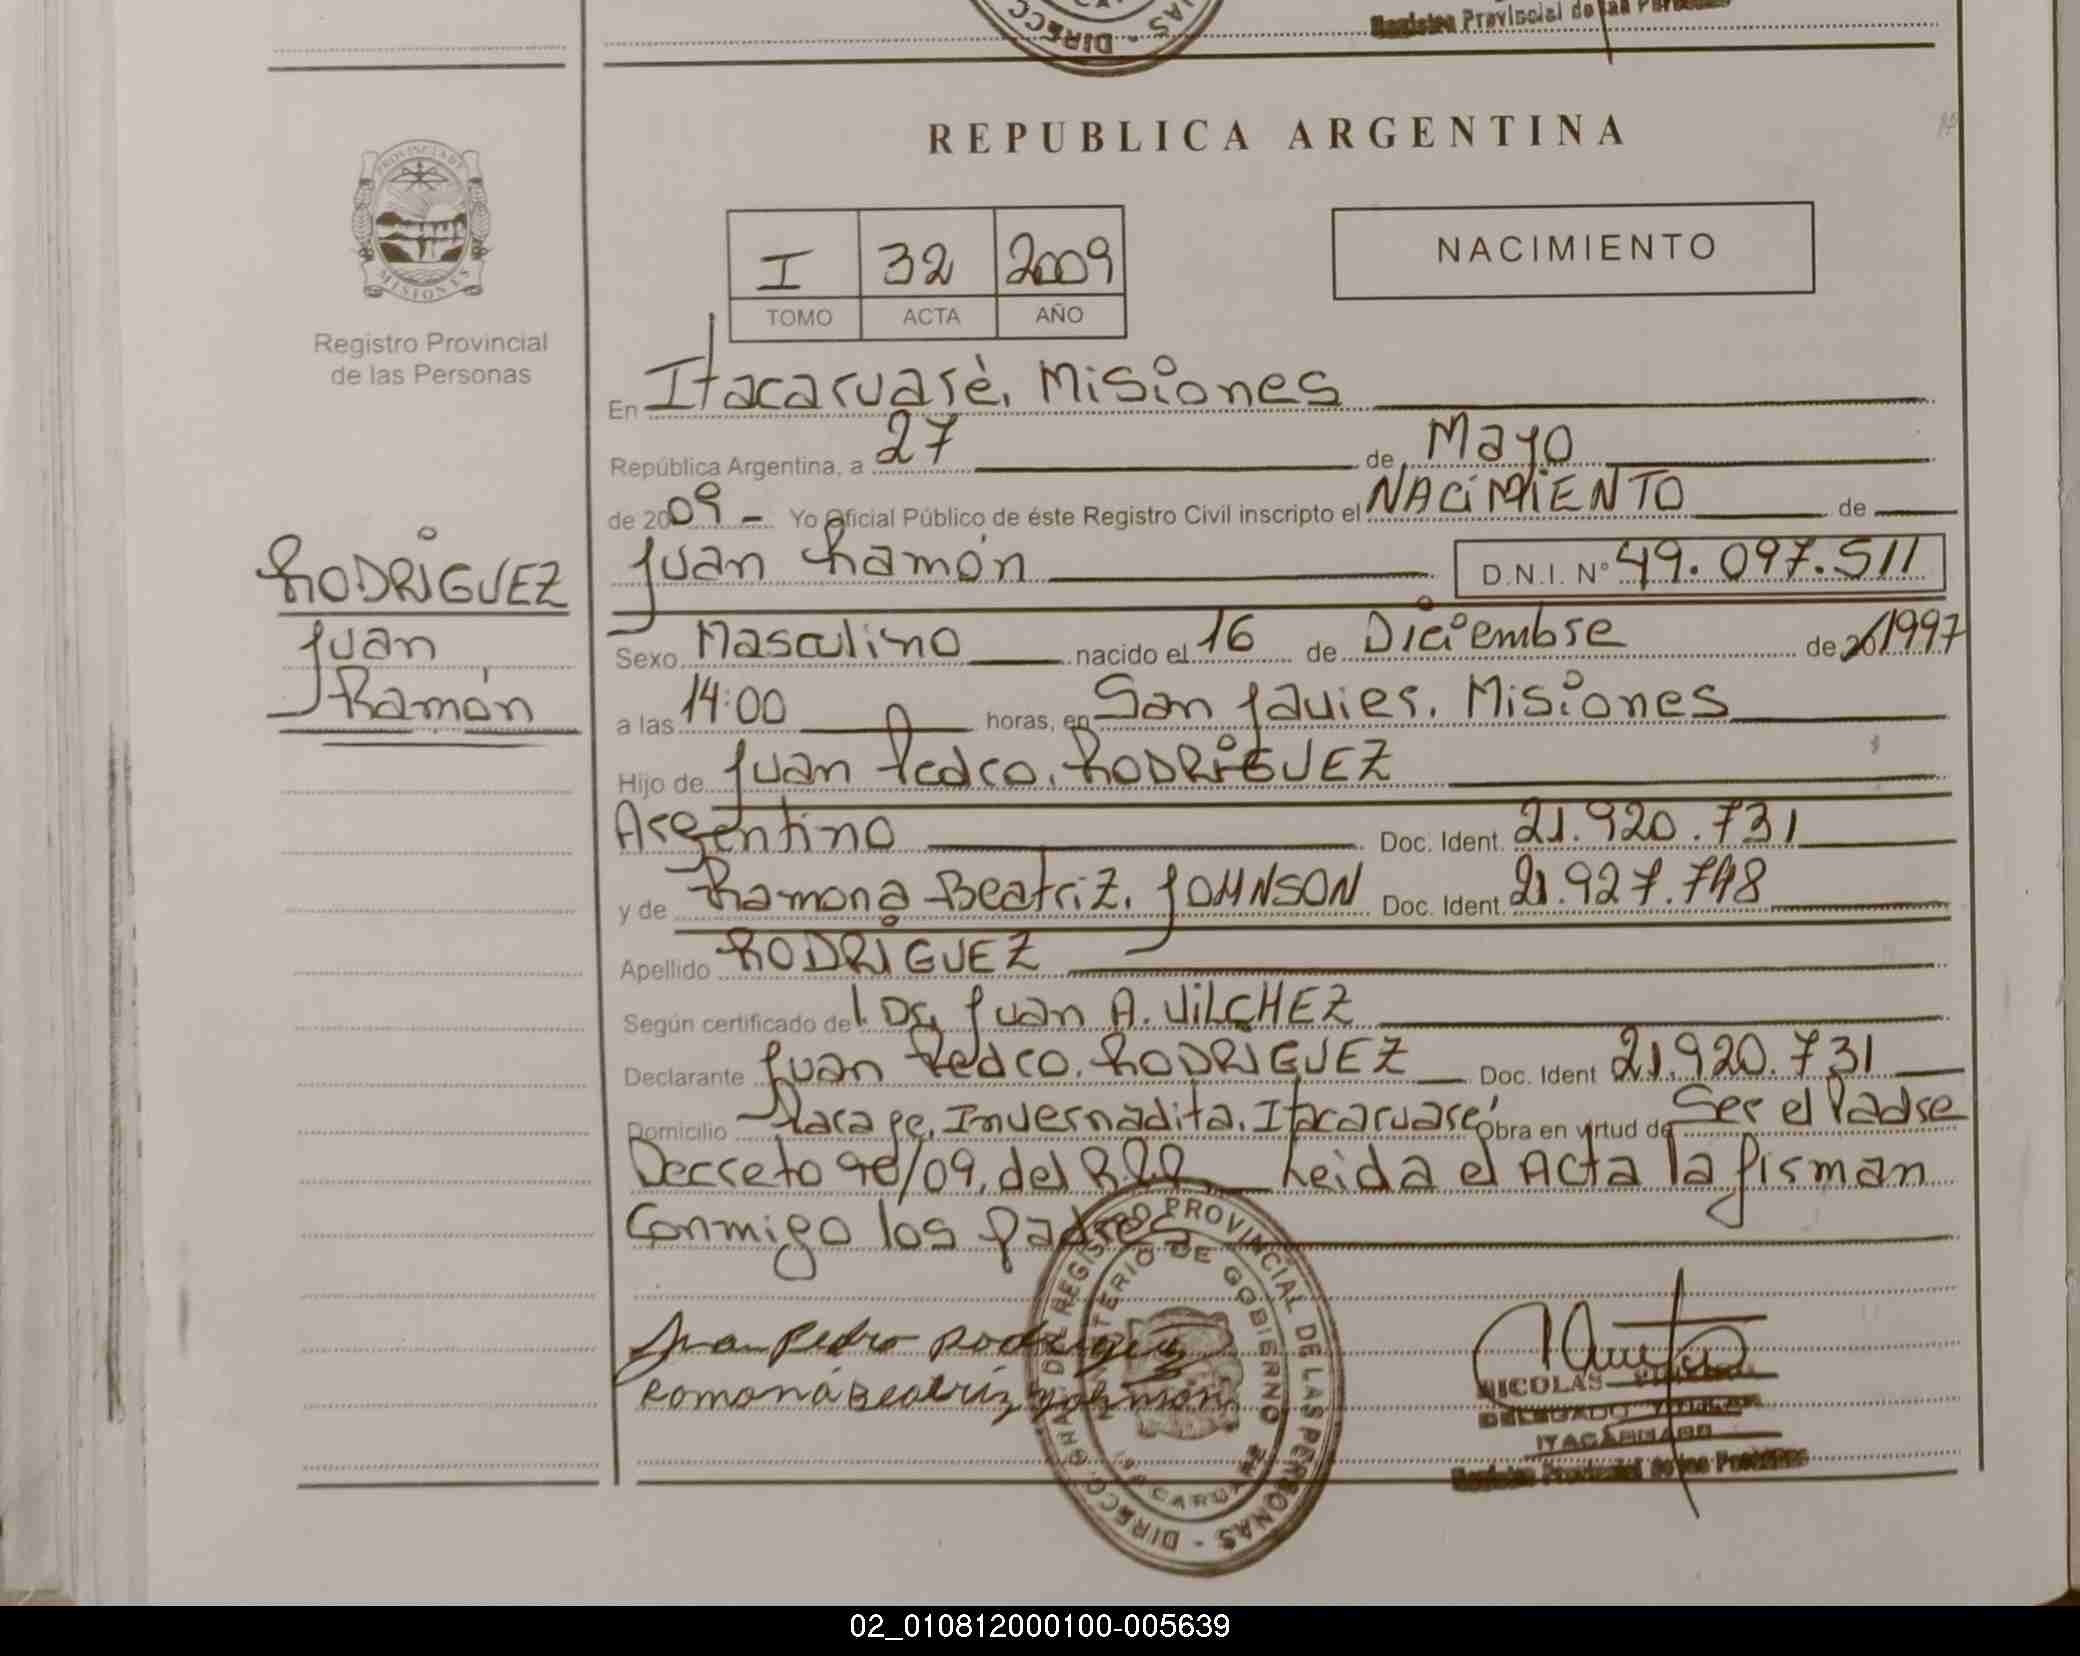 Registro Provincial de las Personas
DIRECC
REPUBLICA ARGENTINA
PROVINCIA DE
MISIONES
Registro Provincial
de las Personas
I 32 2009
TOMO ACTA AÑO
NACIMIENTO
En Itacaruaré, Misiones
República Argentina, a 27 de Mayo
de 2009 - Yo Oficial Público de éste Registro Civil inscripto el NACIMIENTO de
Juan Ramón D.N.I. Nº 49.097.511
RODRIGUEZ
Juan
Ramón
Sexo Masculino nacido el 16 de Diciembre de 20/1997
a las 14:00 horas, en San Javier, Misiones
Hijo de Juan Pedro, RODRIGUEZ
Argentino Doc. Ident. 21.920.731
y de Ramona Beatriz, JOHNSON Doc. Ident. 21.927.748
Apellido RODRIGUEZ
Según certificado del Dr. Juan A. VILCHEZ
Declarante Juan Pedro, RODRIGUEZ Doc. Ident 21.920.731
Domicilio Paraje, Invernadita, Itacaruaré Obra en virtud de Ser el Padre
Decreto 90/09, del Leida el Acta la firman
Conmigo los padres
Juan Pedro Rodriguez
Romona Beatriz
DIRECC. GRAL. DE REGISTRO PROVINCIAL DE LAS PERSONAS -
MINISTERIO DE GOBIERNO
NICOLAS
DELEGADO TITULAR
ITACARUARE
Registro Provincial de las Personas
02_010812000100-005639